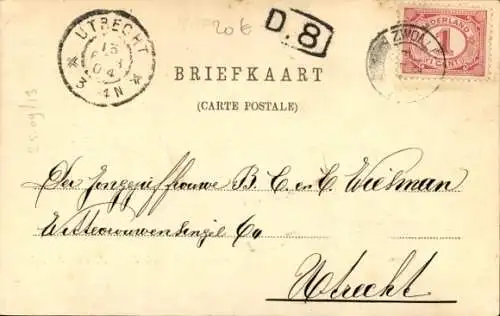 UTRECHT
4 N
20 €
D.8
ZWOLLE
NEDERLAND
1
CENT
BRIEFKAART
(CARTE POSTALE)
2509/13
Den Jongejuffrouwe B. C. en C. Wiesman
Wittevrouwensingel 6a
Utrecht